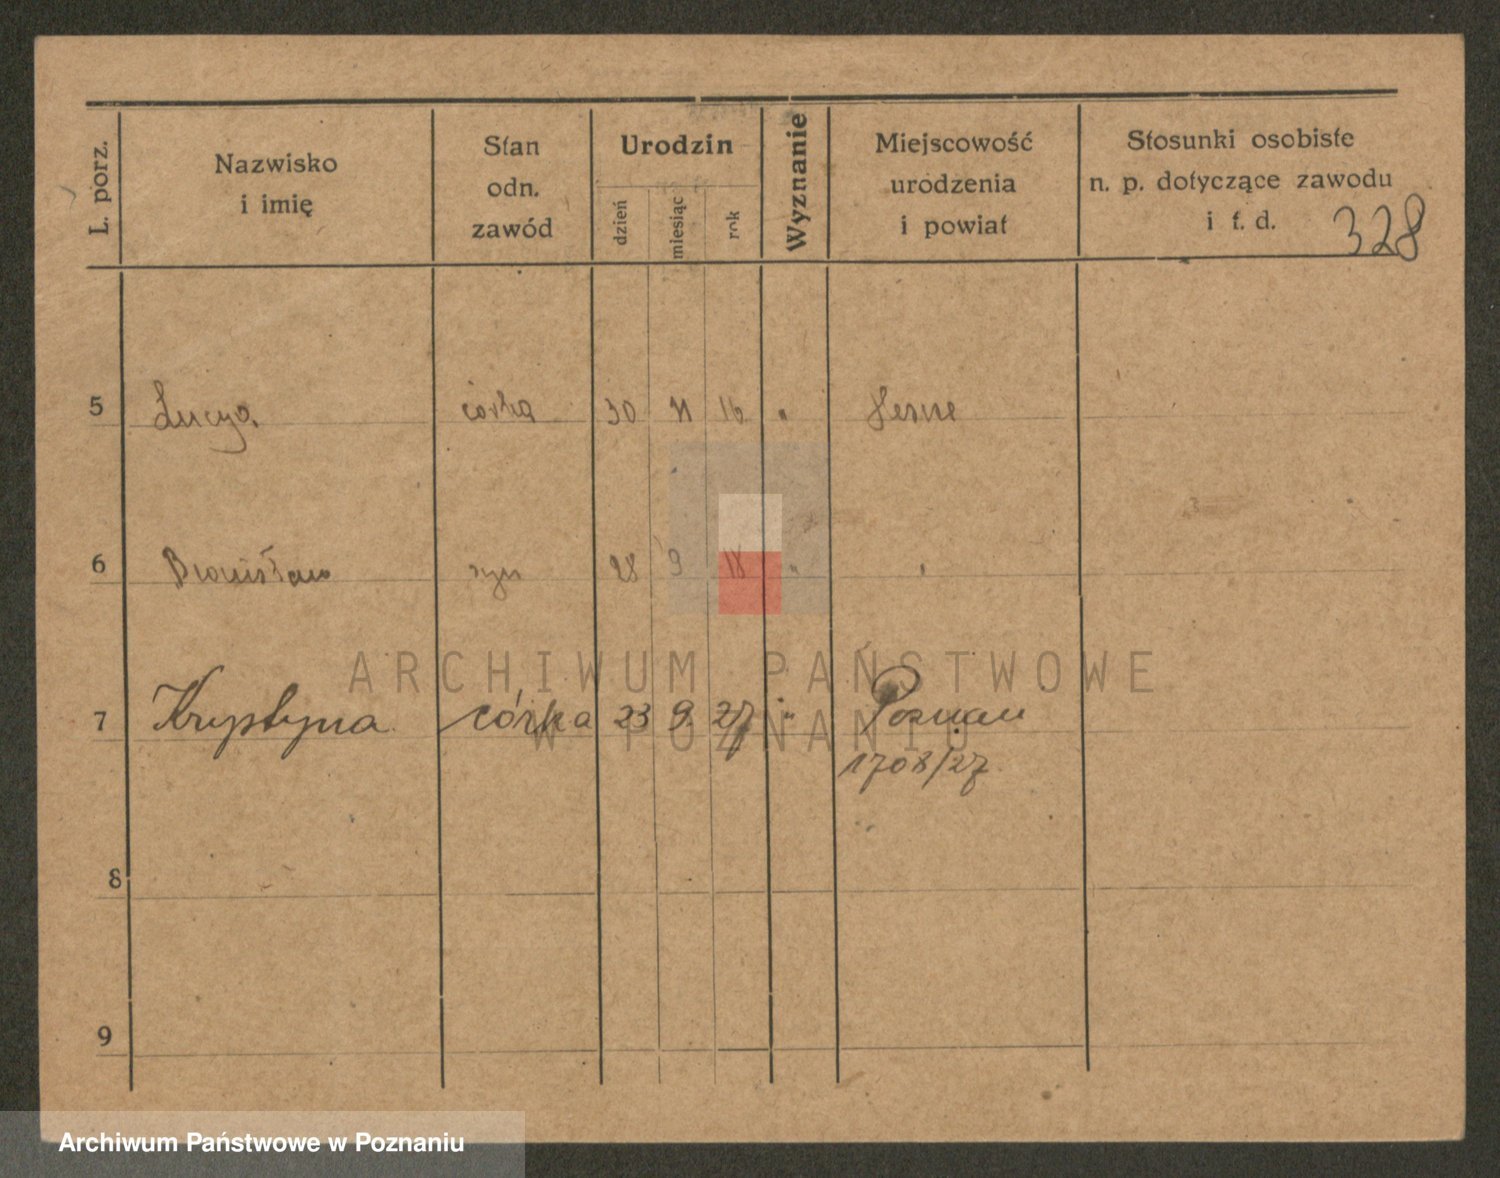 L. porz.
Nazwisko
i imię
Stan
odn.
zawód
Urodzin
dzień
miesiąc
rok
Wyznanie
Miejscowość
urodzenia
i powiat
Stosunki osobiste
n. p. dotyczące zawodu
i t. d.
328
5 Lucya córka 30 11 16 " Herne
6 Bronisław syn 28 9 18 " "
7 Krystyna córka 23 9. 27 " Poznań
1708/27
8
9
ARCHIWUM PAŃSTWOWE
W POZNANIU
Archiwum Państwowe w Poznaniu